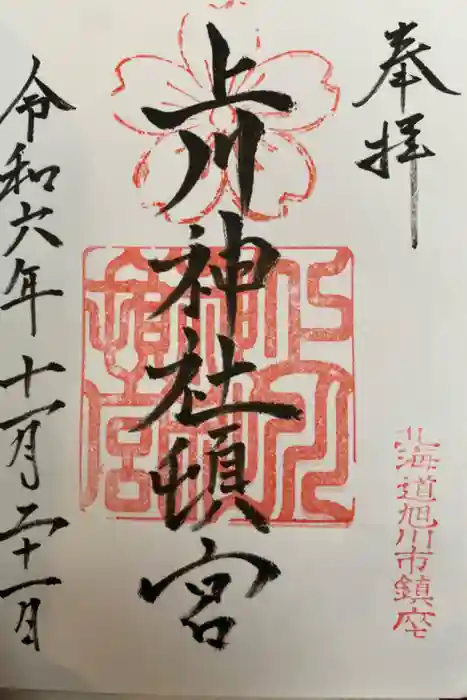 奉拝
北海道旭川市鎮座
上川神社頓宮
上川
神社
頓宮
令和六年十一月二十一日